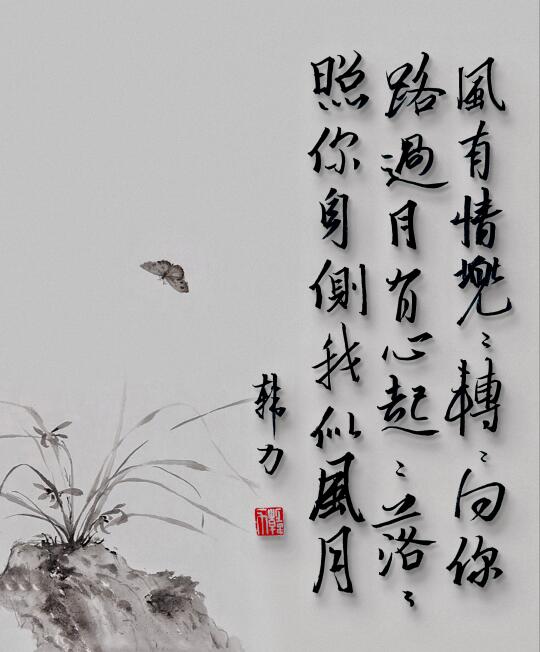 風有情兜〻轉〻向你
路過月有心起〻落〻
照你身側我似風月
韩力